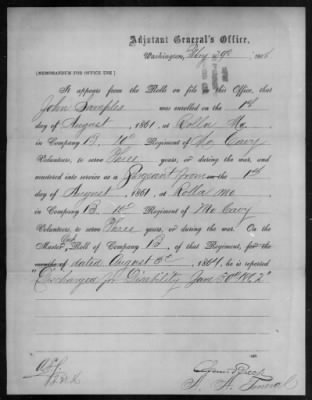 Adjutant General's Office,
Washington, May 29th, 186
[MEMORANDUM FOR OFFICE USE.]
It appears from the Rolls on file in this Office, that
John was enrolled on the 1st
day of August, 1861, at Rolla Mo
in Company B, Regiment of Mo Cavy
Volunteers, to serve Three years, or during the war, and
mustered into service as a Sergeant from the 1st
day of August, 1861, at Rolla Mo
in Company B, Regiment of Mo Cavy
Volunteers, to serve Three years, or during the war. On the
Muster Roll of Company B, of that Regiment, for the
months of dated August 3d, 1864, he is reported
"Discharged for Disability Jany 30th 1862"